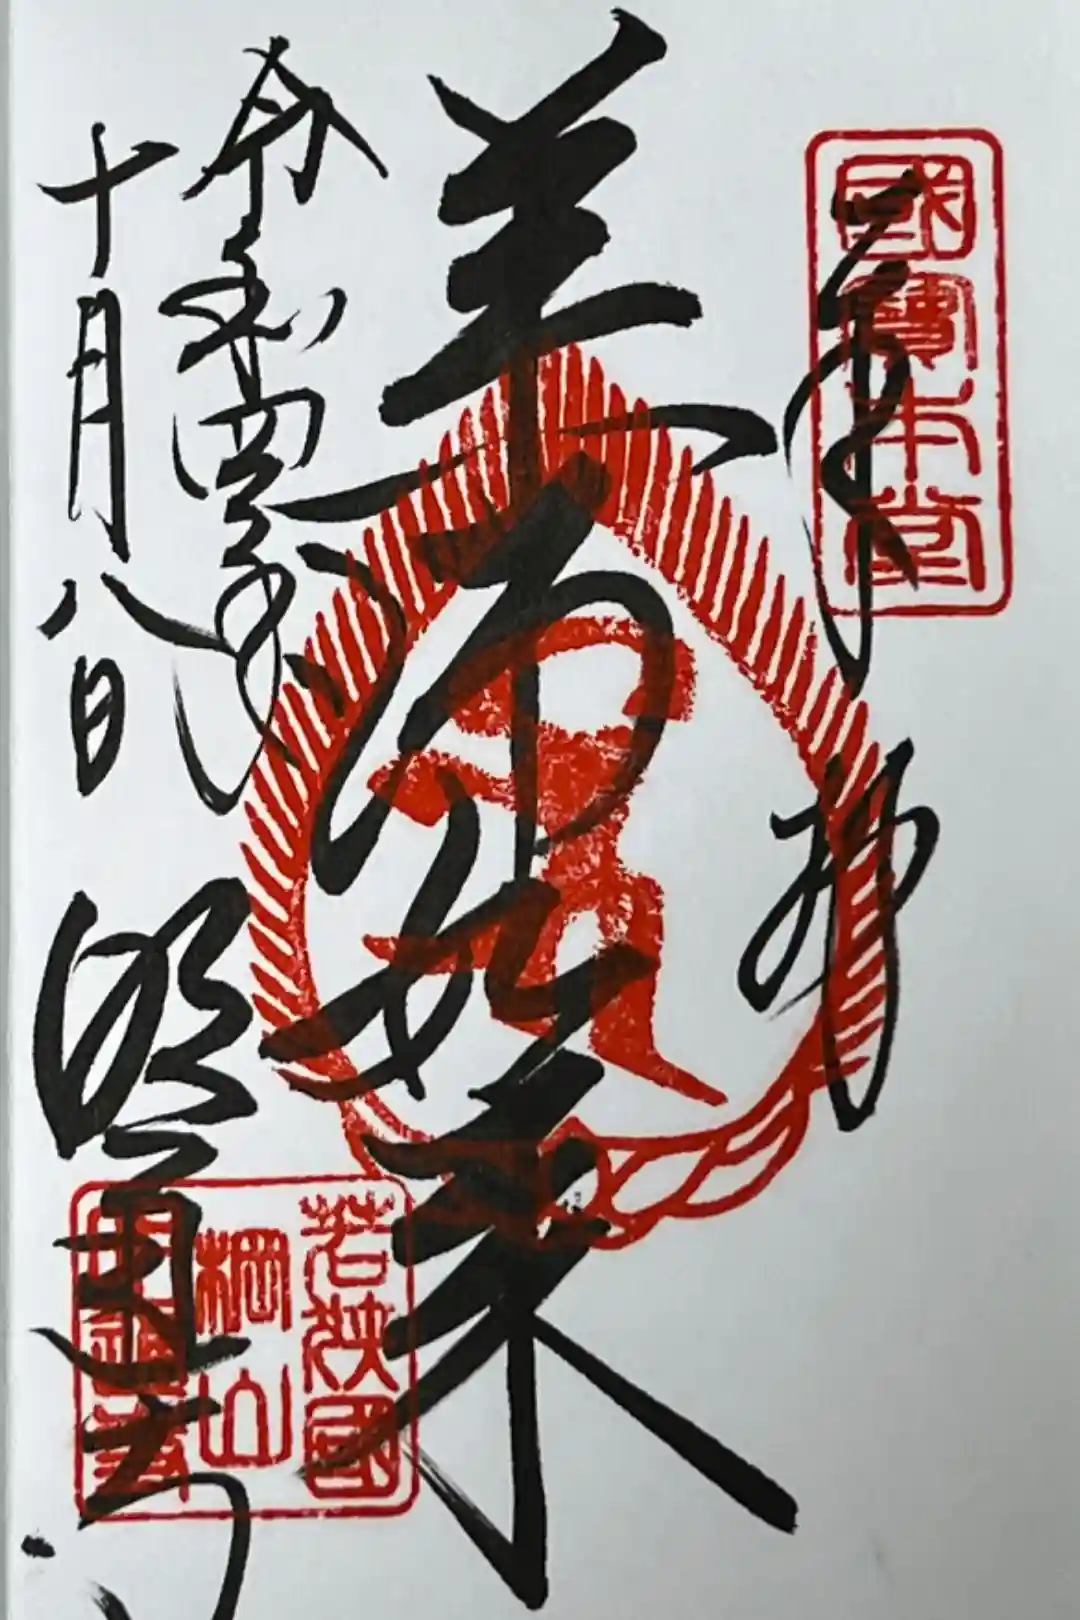 國寶本堂
奉拝
薬師如来
令和
十月八日
明通寺
若狹國
棡山
明通寺